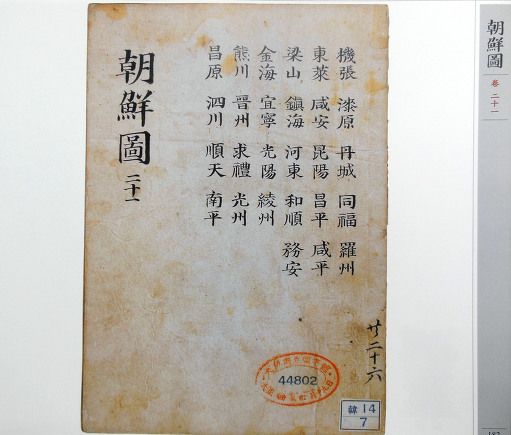 朝鮮圖 卷 二十一
機張 漆原 丹城 同福 羅州
東萊 咸安 昆陽 昌平 咸平
梁山 鎭海 河東 和順 務安
金海 宜寧 光陽 綾州
熊川 晉州 求禮 光州
昌原 泗川 順天 南平
朝鮮圖 二十一
二十六
44802
韓 14
7